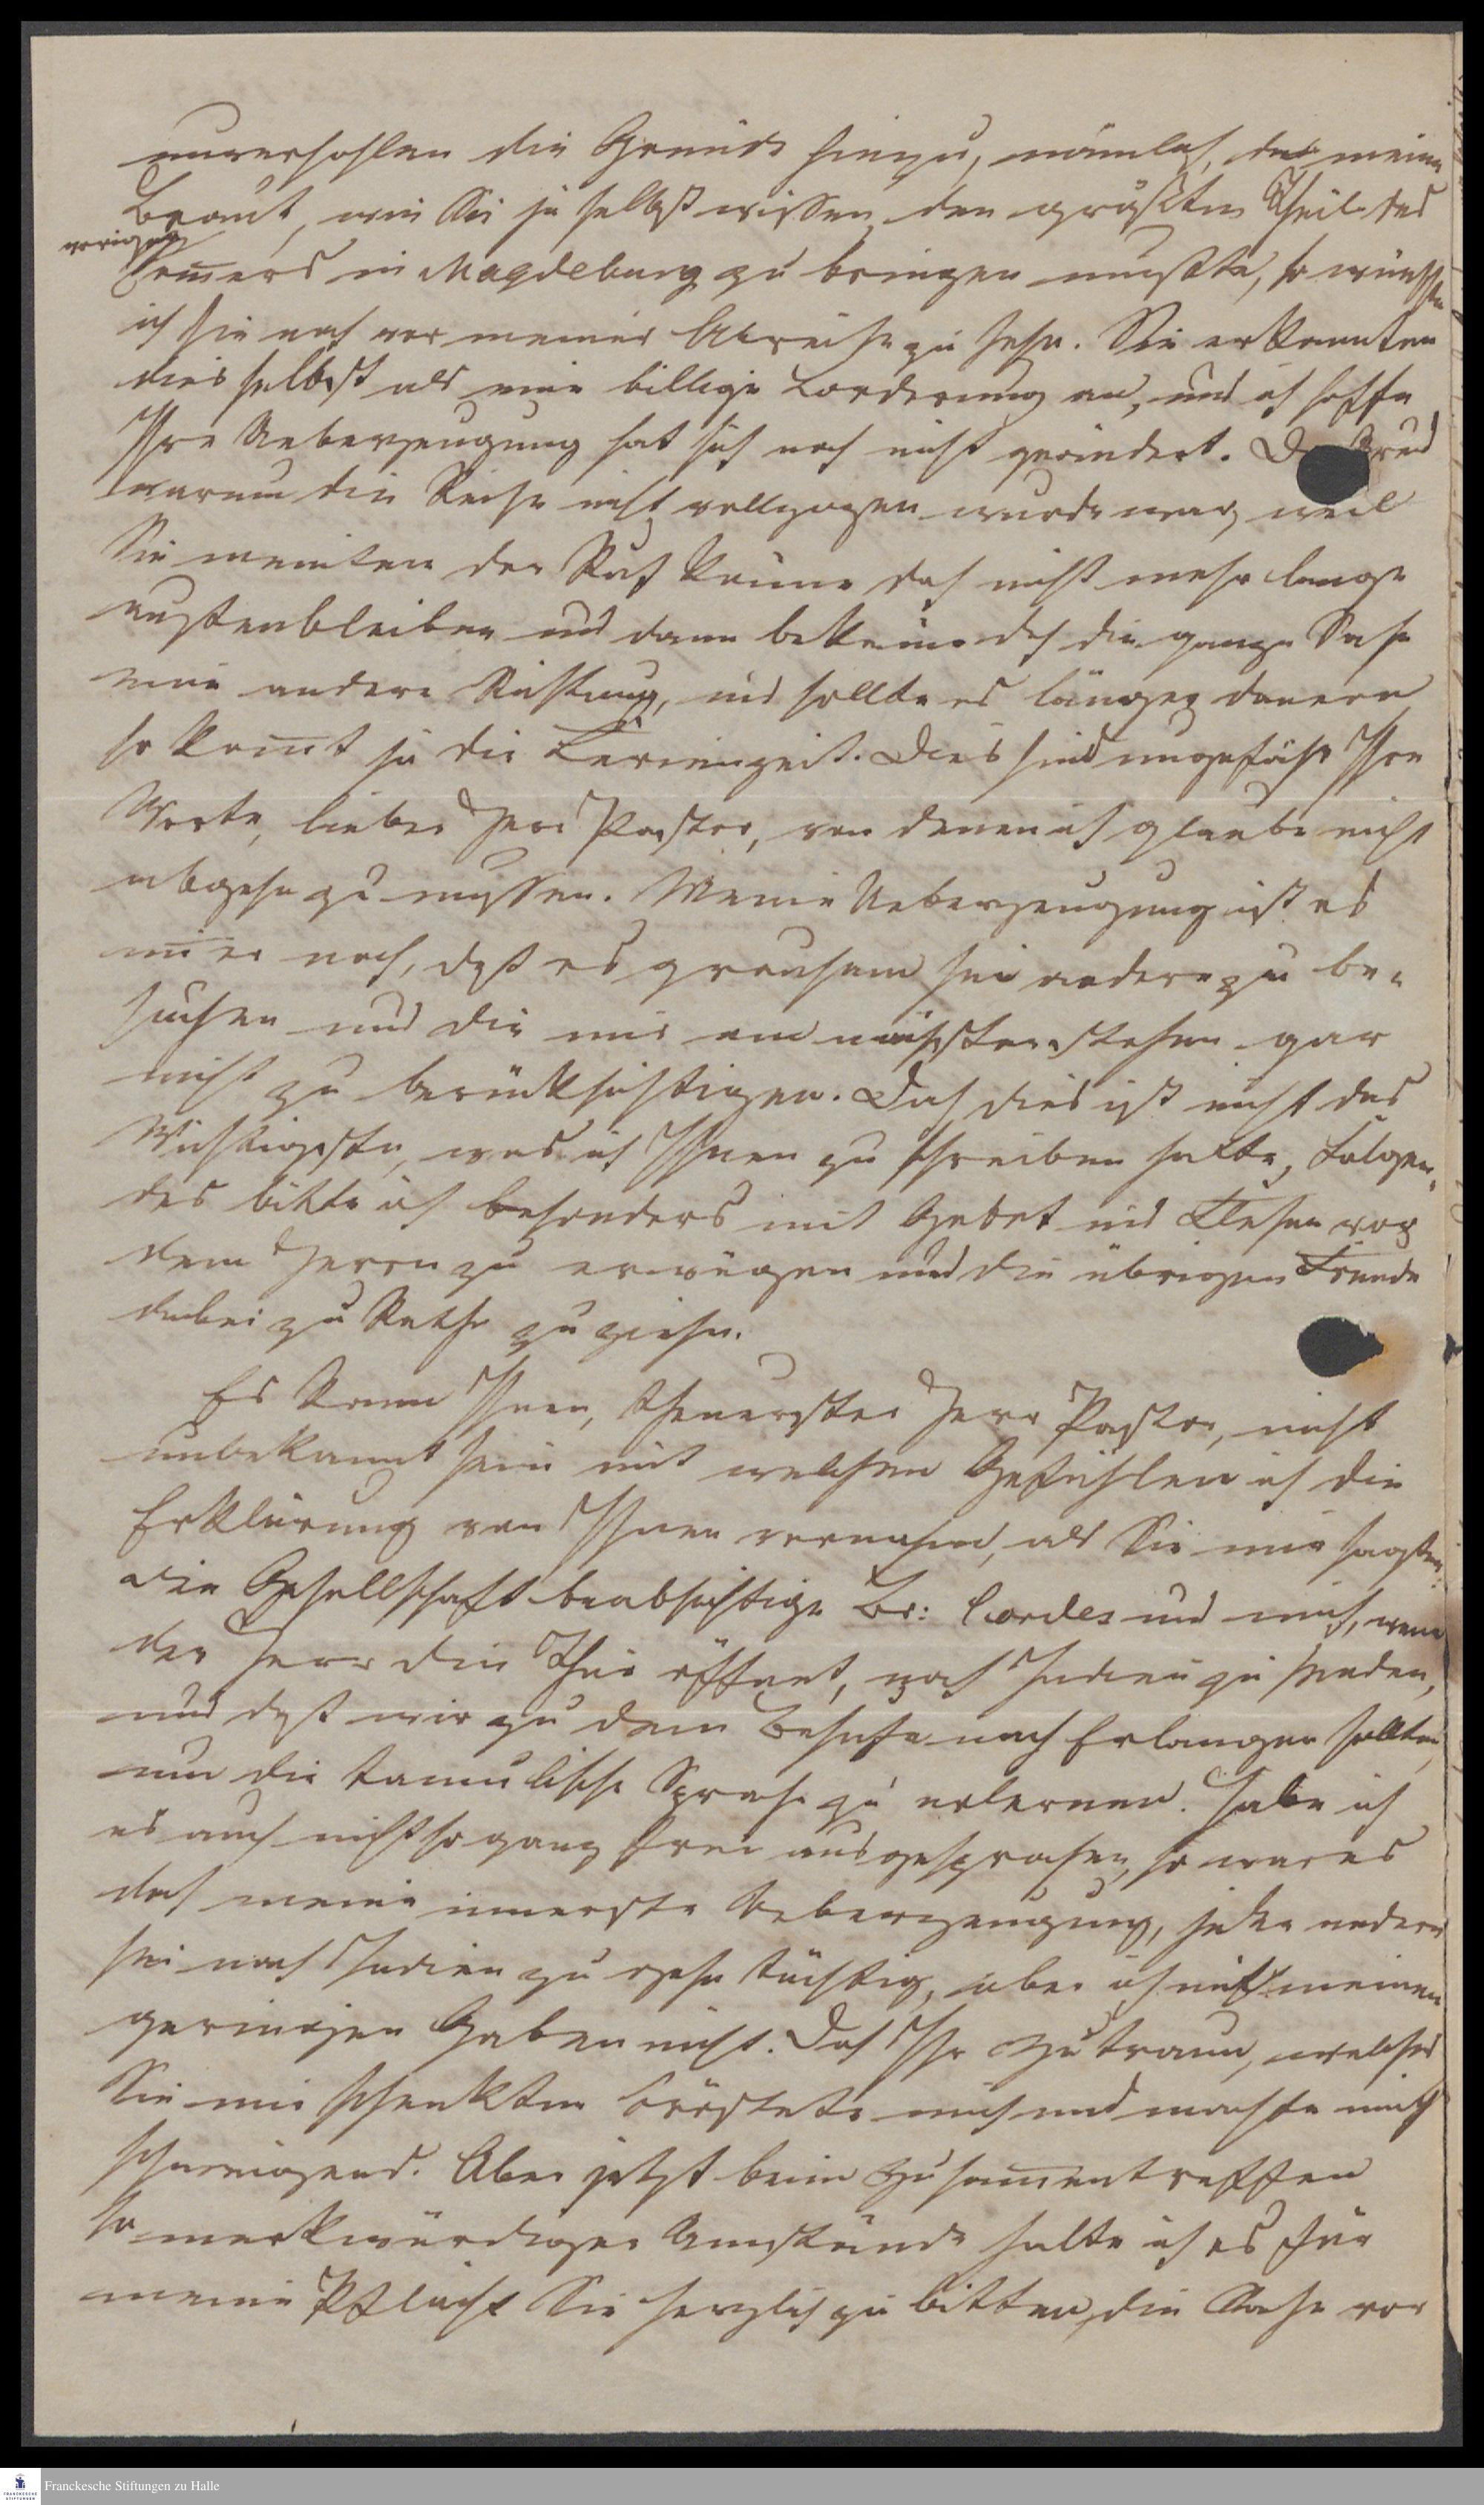 unverhohlen die Gründe hinzu, nämlich, da meine
Braut, wie Sie ja selbst wissen den größten Theil des
vorigen
Somers in Magdeburg zu bringen mußte, so wünschte
ich sie noch vor meiner Abreise zu sehn. Sie erkannten
dies selbst als eine billige Forderung an, und ich hoffe
Ihre Ueberzeugung hat sich noch nicht geändert. Der Grund
warum die Reise nicht vollzogen wurde war, weil
Sie meinten der Ruf könne doch nicht mehr lange
außenbleiben und dann bekäme doch die ganze Sache
eine andere Richtung, und sollte es länger dauern
so komt ja die Ferienzeit. Dies sind ungefähr Ihre
Worte, lieber Herr Pastor, von denen ich glaube nicht
abgehn zu müssen. Meine Ueberzeugung ist es
imer noch, daß es grausam sei andere zu be-
suchen und die mir am nächsten stehen gar
nicht zu berücksichtigen. Doch dies ist nicht das
Wichtigste, was ich Ihnen zu schreiben hatte, Folgen-
des bitte ich besonders mit Gebet und Flehen vor
dem Herrn zu erwägen und die übrigen Freunde
dabei zu Rathe zu ziehn.
Es kann Ihnen, theuerster Herr Pastor, nicht
unbekannt sein mit welchen Gefühlen ich die
Erklärung von Ihnen vernahm, als Sie mir sagten:
die Gesellschaft beabsichtige Br: Cordes und mich, wenn
der Herr die Thür öffnet, nach Indien zu senden,
und daß wir zu dem Behufe nach Erlangen sollten
um die tamulische Sprache zu erlernen. Habe ich
es auch nicht so ganz frei ausgesprochen, so war es
doch meine innerste Ueberzeugung, jeder andere
sei nach Indien zu gehn tüchtig, aber ich mit meinen
geringen Gaben nicht. Doch Ihr Zutraun, welches
Sie mir schenkten tröstete mich und machte mich
schweigend. Aber jetzt beim Zusamentreffen
so merkwürdiger Umstände halte ich es für
meine Pflicht Sie herzlich zu bitten, die Sache vor
Franckesche Stiftungen zu Halle